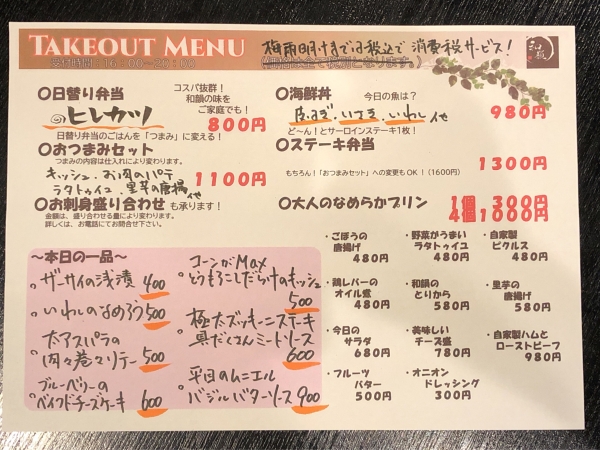 TAKEOUT MENU
梅雨明けまでは税込で消費税サービス!
受付時間:16:00~20:00
〇日替り弁当
コスパ抜群!
和韻の味を
ご家庭でも!
ヒレカツ
800円
日替り弁当のごはんを「つまみ」に変える!
〇おつまみセット
つまみの内容は仕入れにより変わります。
キッシュ、お肉のパテ
ラタトゥイユ、里芋の唐揚 他
1100円
〇お刺身盛り合わせ も承ります!
金額は、盛り合わせる量により変わります。
詳しくは、お電話にてお問合せ下さい。
〇海鮮丼
今日の魚は?
皮はぎ、いさき、いわし 他
980円
ど~ん!とサーロインステーキ1枚!
〇ステーキ弁当
1300円
もちろん!「おつまみセット」への変更もOK!(1600円)
〇大人のなめらかプリン
1個 300円
4個1000円
~本日の一品~
ザーサイの浅漬 400
いわしのなめろう 500
太アスパラの
肉々巻々リテー 500
ブルーベリーの
ベイクドチーズケーキ 600
コーンがMax
とうもろこしだらけのキッシュ
500
極太ズッキーニステーキ
具だくさんミートソース
600
平目のムニエル
バジルバターソース 900
・ごぼうの
唐揚げ
480円
・野菜がうまい
ラタトゥイユ
480円
・自家製
ピクルス
480円
・鶏レバーの
オイル煮
480円
・和韻の
とりから
580円
・里芋の
唐揚げ
580円
・今日の
サラダ
680円
・美味しい
チーズ盛
780円
・自家製ハムと
ローストビーフ
980円
・フルーツ
バター
500円
・オニオン
ドレッシング
300円